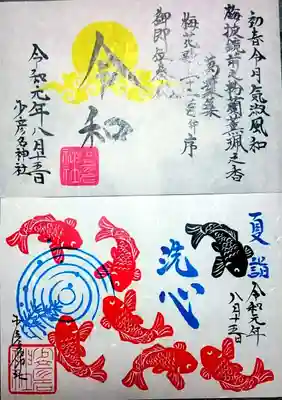 初春令月気淑風和
梅披鏡前之粉蘭薫珮之香
萬葉集
梅花歌三十二首并序
令和
令和元年八月十五日
少彦名神社
夏詣
令和元年
八月十五日
洗心
少彦名神社